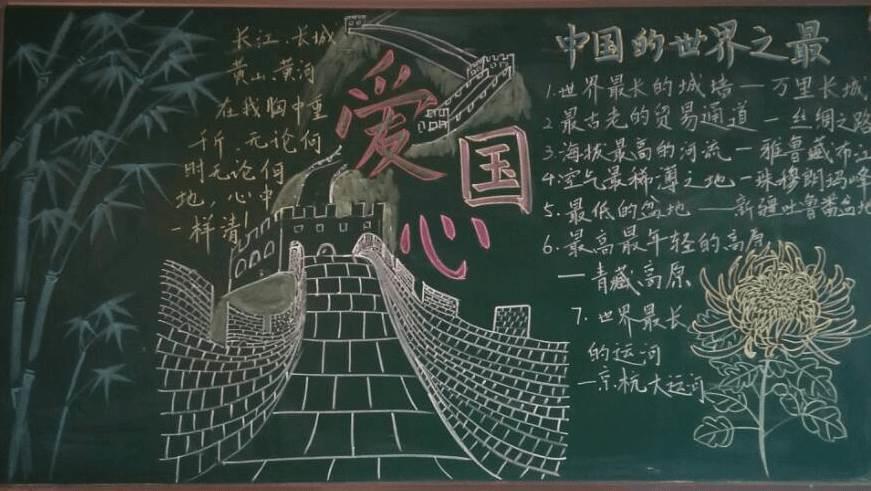 长江、长城
黄山、黄河
在我胸中重
千斤 无论何
时无论何
地，心中
一样清！
爱
国
心
中国的世界之最
1.世界最长的城墙一万里长城
2最古老的贸易通道一丝绸之路
3.海拔最高的河流一雅鲁藏布江
4.空气最稀薄之地一珠穆朗玛峰
5.最低的盆地——新疆吐鲁番盆地
6.最高最年轻的高原
一青藏高原
7.世界最长
的运河
一京杭大运河